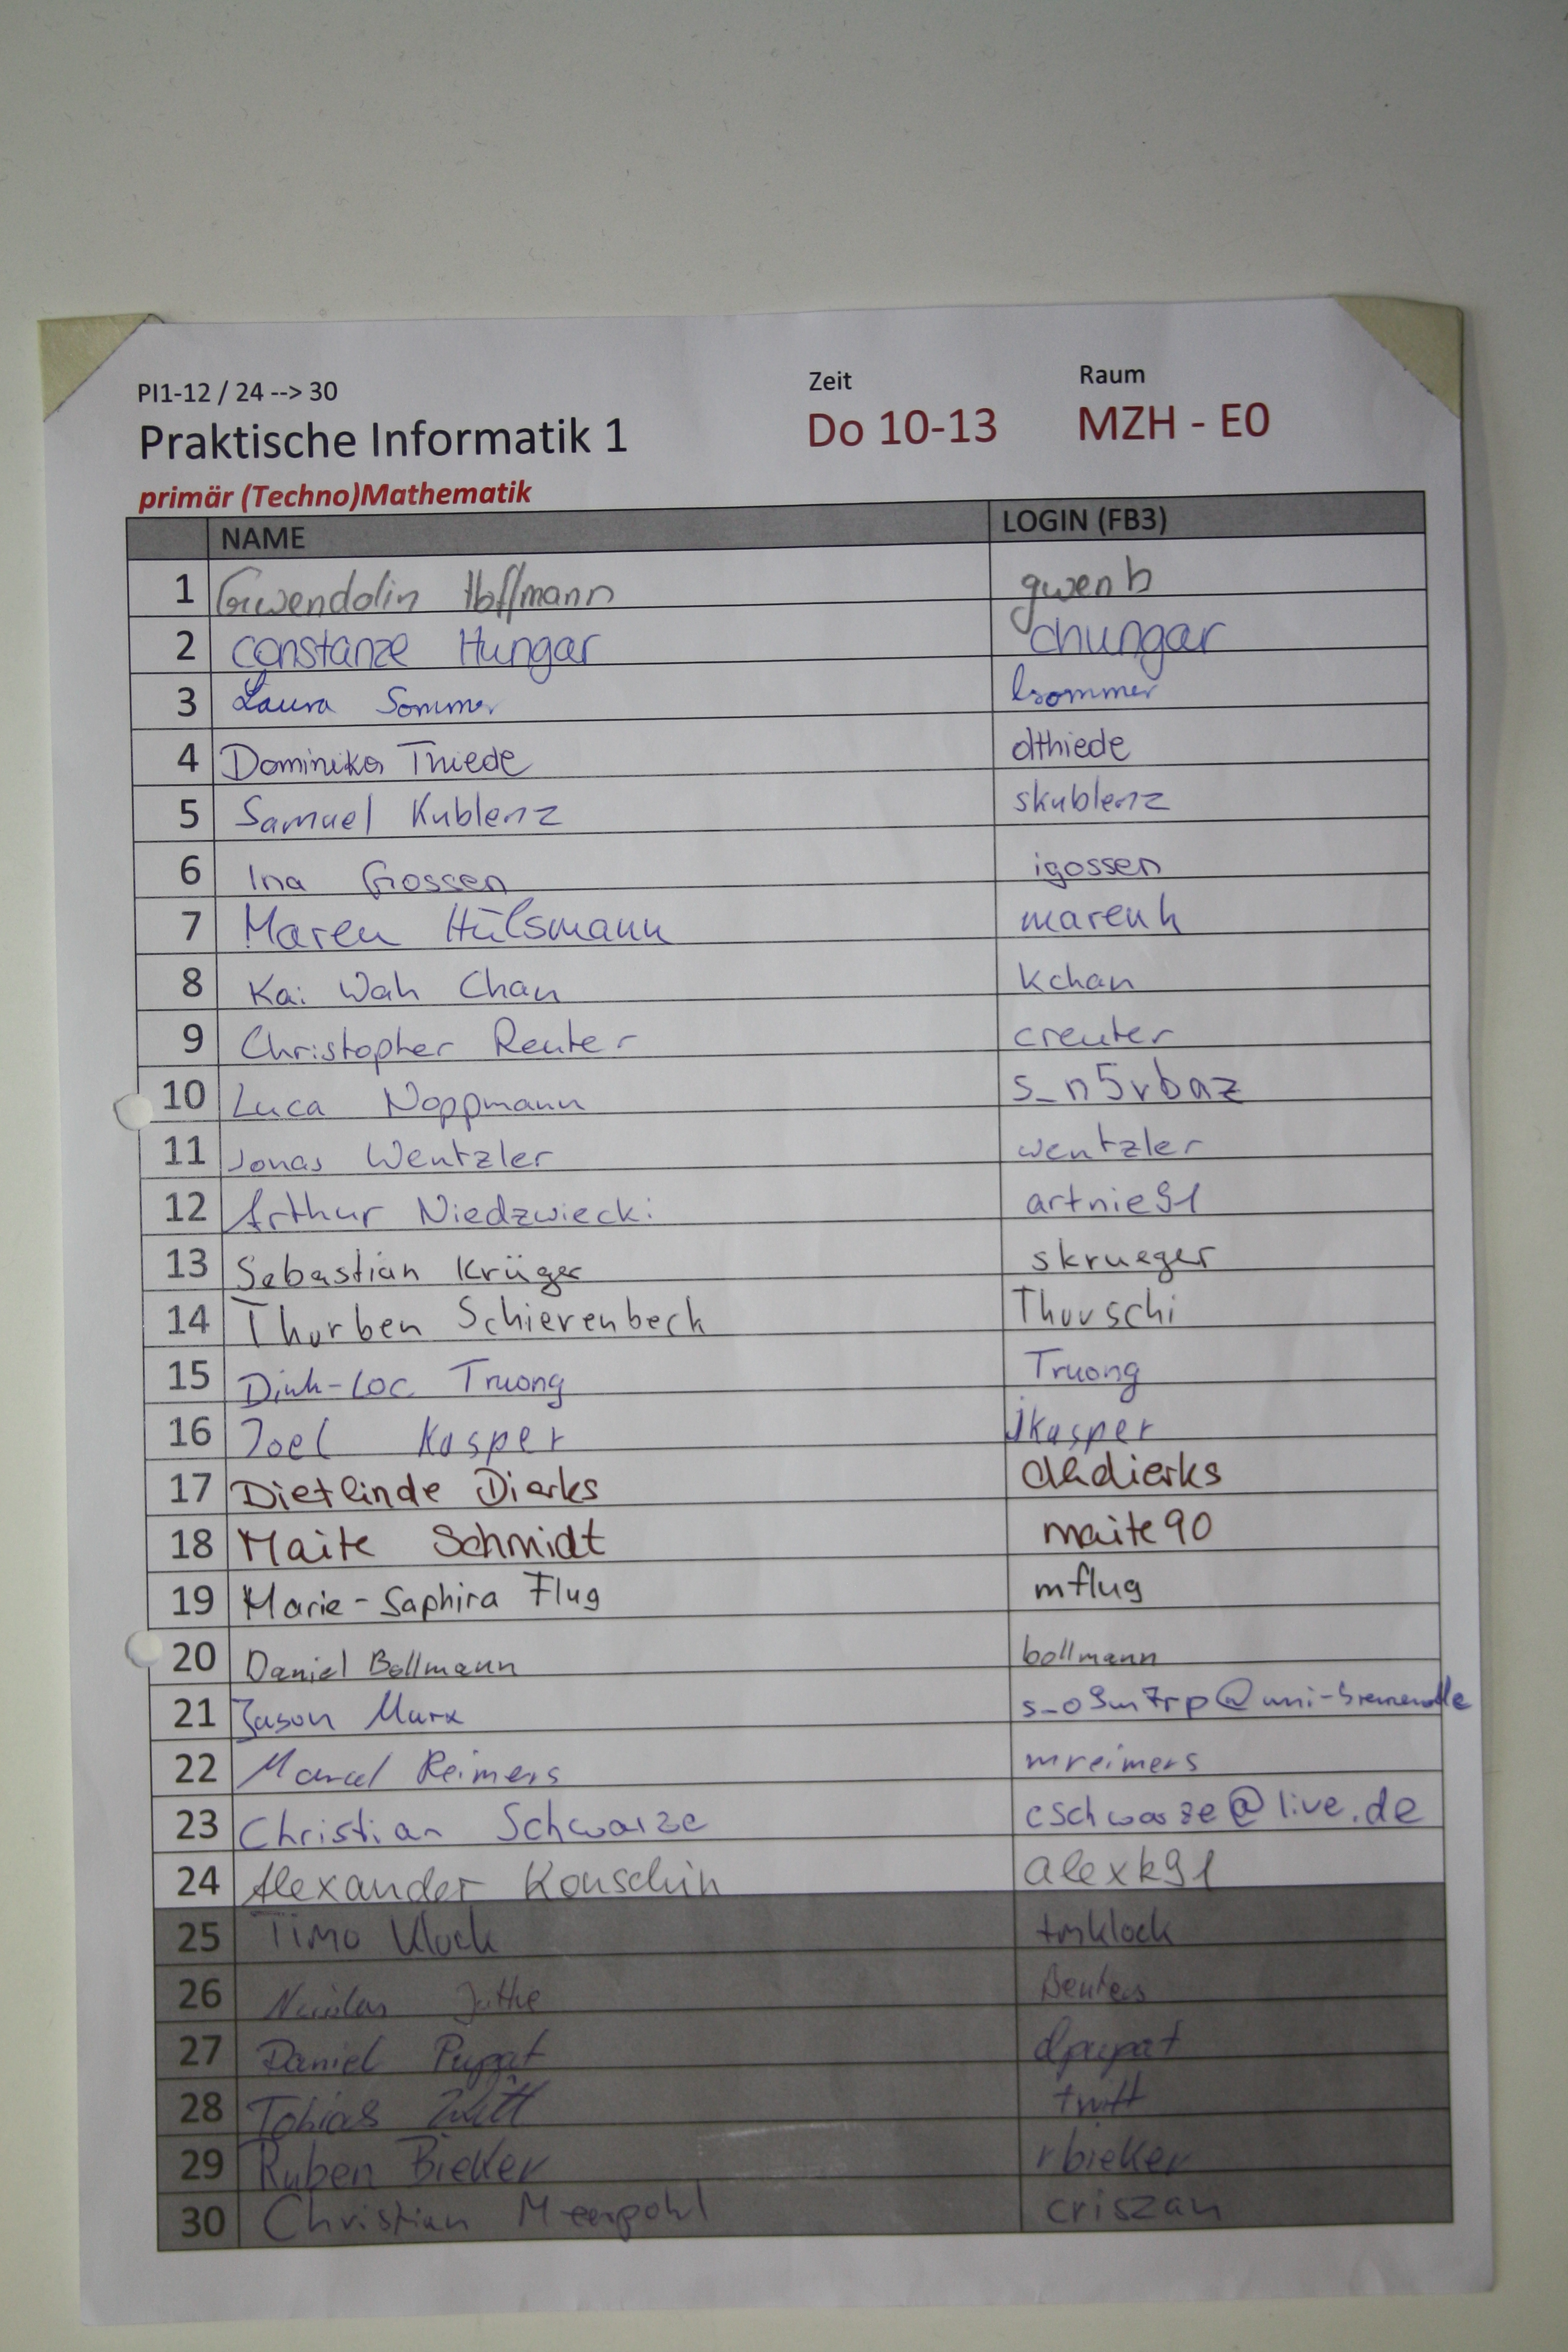 PI1-12 / 24 --> 30 Zeit Raum
Praktische Informatik 1 Do 10-13 MZH - E0
primär (Techno)Mathematik
NAME LOGIN (FB3)
1 Gwendolin Hoffmann gwenh
2 Constanze Hungar chungar
3 Laura Sommer lsommer
4 Dominika Thiede dthiede
5 Samuel Kublenz skublenz
6 Ina Gossen igossen
7 Maren Hülsmann marenh
8 Kai Wah Chan kchan
9 Christopher Reuter creuter
10 Luca Noppmann s_n5vbaz
11 Jonas Wentzler wentzler
12 Arthur Niedzwiecki artnie91
13 Sebastian Krüger skrueger
14 Thurben Schierenbeck Thurschi
15 Dinh-Loc Truong Truong
16 Joel Kasper jkasper
17 Dietlinde Dierks
18 Maite Schmidt maite90
19 Marie-Saphira Flug mflug
20 Daniel Bollmann bollmann
21 Jason Marx
22 Marcel Reimers mreimers
23 Christian Schwarze cschwarze@live.de
24 Alexander Konschin alexk91
25 Timo Klock tmklock
26
27 Daniel Pupat dpupat
28 Tobias
29 Ruben Bieker rbieker
30 Christian criszan